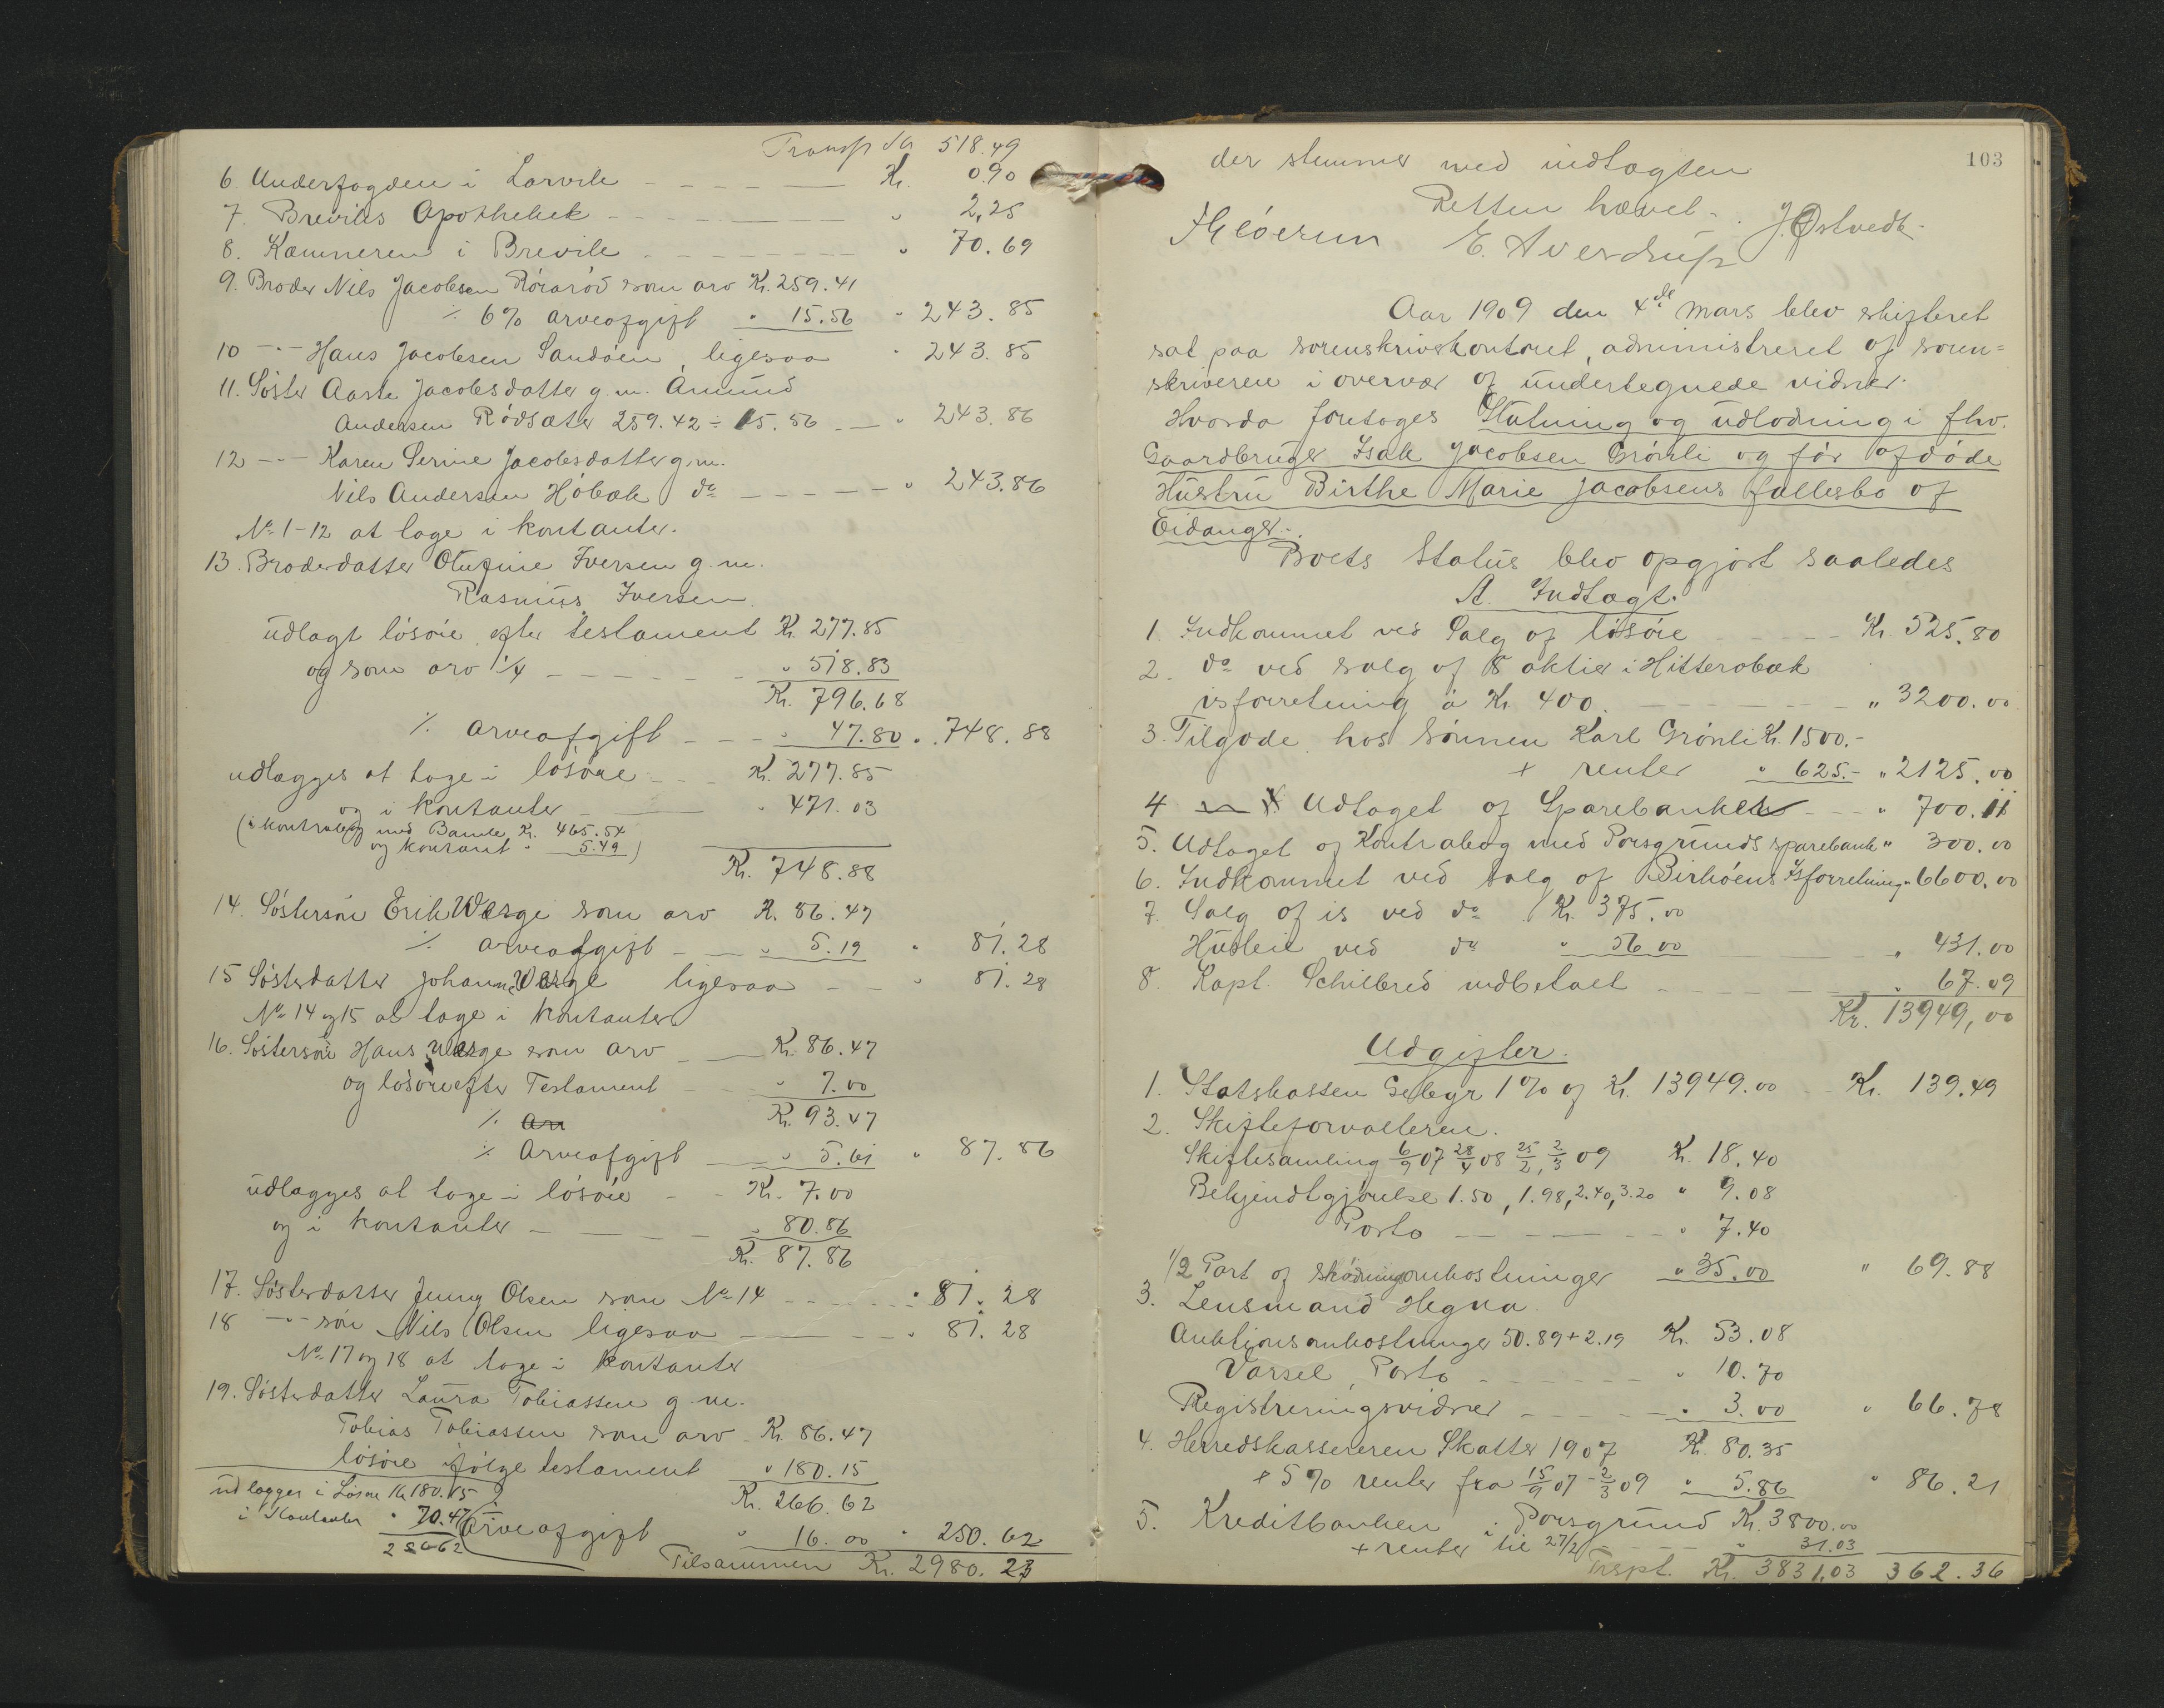 Transp Kr 518.49
6. Underfogden i Larvik - - - - Kr. 0.90
7. Breviks Apothek - - - - " 2,25
8. Kæmneren i Brevik - - - - " 70.69
9. Broder Nils Jacobsen Röraröd som arv Kr. 259.41
÷ 6% arveafgift " 15.56 " 243.85
10 - " - Hans Jacobsen Sandöen, ligesaa " 243.85
11. Söster Aaste Jacobsdatter g.m. Amund
Andersen Rödsæter 259.42 ÷ 15.56 - - " 243.86
12 - " - Karen Serine Jacobsdatter g.m.
Nils Andersen Höbæk do - - - - " 243.86
No 1-12 at tage i kontanter.
13. Broderdatter Olufine Iversen g.m.
Rasmus Iversen
udlagt lösöre efter testament Kr. 277.85
og som arv 1/4 - - - - " 518.83
Kr. 796.68
÷ arveafgift - - - " 47.80 " 748.88
udlægges at tage i lösöre - - - Kr. 277.85
og i kontanter - - " 471.03
(i kontrabog med Bamle Kr. 465.54
og kontant " 5.49)
Kr. 748.88
14. Söstersön Erik Werge som arv K. 86.47
÷ arveafgift - - " 5.19 " 81.28
15 Sösterdatter Johanne Werge ligesaa - - " 81.28
No 14 og 15 at tage i kontanter
16. Söstersön Hans Werge som arv - - Kr. 86.47
og lösöre efter Testament " 7.00
÷ arv Kr. 93.47
÷ Arveafgift - - " 5.61 " 87.86
udlægges at tage i lösöre - - Kr. 7.00
og i kontanter - - - - " 80.86
Kr. 87.86
17. Sösterdatter Jenny Olsen som No 14 - - - - " 81.28
18 - " - sön Nils Olsen ligesaa - - - " 81.28
No 17 og 18 at tage i kontanter
19. Sösterdatter Laura Tobiassen g.m.
Tobias Tobiassen som arv - Kr. 86.47
lösöre ifölge testament " 180.15
udlægges i Lösöre Kr 180.15 Kr. 266.62
i Kontanter " 70.47 ÷ Arveafgift " 16.00 " 250.62
250.62
Tilsammen Kr. 2980.23
103
der stemmer med indtægten
Retten hævet.
E. Sverdrup J. Østvedt.
Aar 1909 den 4de Mars blev skifteret
sat paa sorenskriverkontoret, administreret af soren=
skriveren i overvær af undertegnede vidner.
Hvorda foretoges Slutning og udlodning i fhv.
Gaardbruger Isak Jacobsen Grönli og för afdöde
Hustru Birthe Marie Jacobsens fællesbo af
Eidanger.
Boets Status blev opgjort saaledes
A. Indtægt.
1. Indkommet ved Salg af lösöre - - - - Kr. 525.80
2. do ved salg af 8 aktier i Hitterobæk
isforretning à Kr 400. - - - - " 3200.00
3. Tilgode hos Sönnen Karl Grönli Kr. 1500.-
+ renter " 625.- " 2125.00
4 Udtaget af Sparebanken - - - " 700.11
5. Udtaget af Kontrabog med Porsgrunds sparebank " 300.00
6. Indkommet ved salg af Birköens Isforretning " 6600.00
7. Salg af is ved do Kr. 375.00
Husleie ved do " 56.00 - - " 431.00
8. Kapt. Schilbred indbetalt - - - - " 67.09
Kr. 13949,00
Udgifter.
1. Statskassen Gebyr 1% af Kr. 13949.00 - - Kr. 139.49
2. Skifteforvalteren.
Skiftesamling 6/9 07 28/4 08 25/2, 2/3 09 K. 18.40
Bekjendtgjörelse 1.50, 1.98, 2.40, 3.20 " 9.08
Porto - - - - " 7.40
1/2 Part af skjödningsomkostninger " 35.00 " 69.88
3. Lensmand Hegna.
Auktionsomkostninger 50.89 + 2.19 Kr. 53.08
Varsel, Porto - - - - " 10.70
Registreringsvidner - - - - " 3.00 " 66.78
4. Herredskassereren Skatter 1907 K. 80.35
+ 5% renter fra 15/9 07 - 2/3 09 " 5.86 " 86.21
5. Kreditbanken i Porsgrund Kr. 3800.00
+ renter til 27/2 - - - " 31.03
Trspt. Kr. 3831,03 362.36